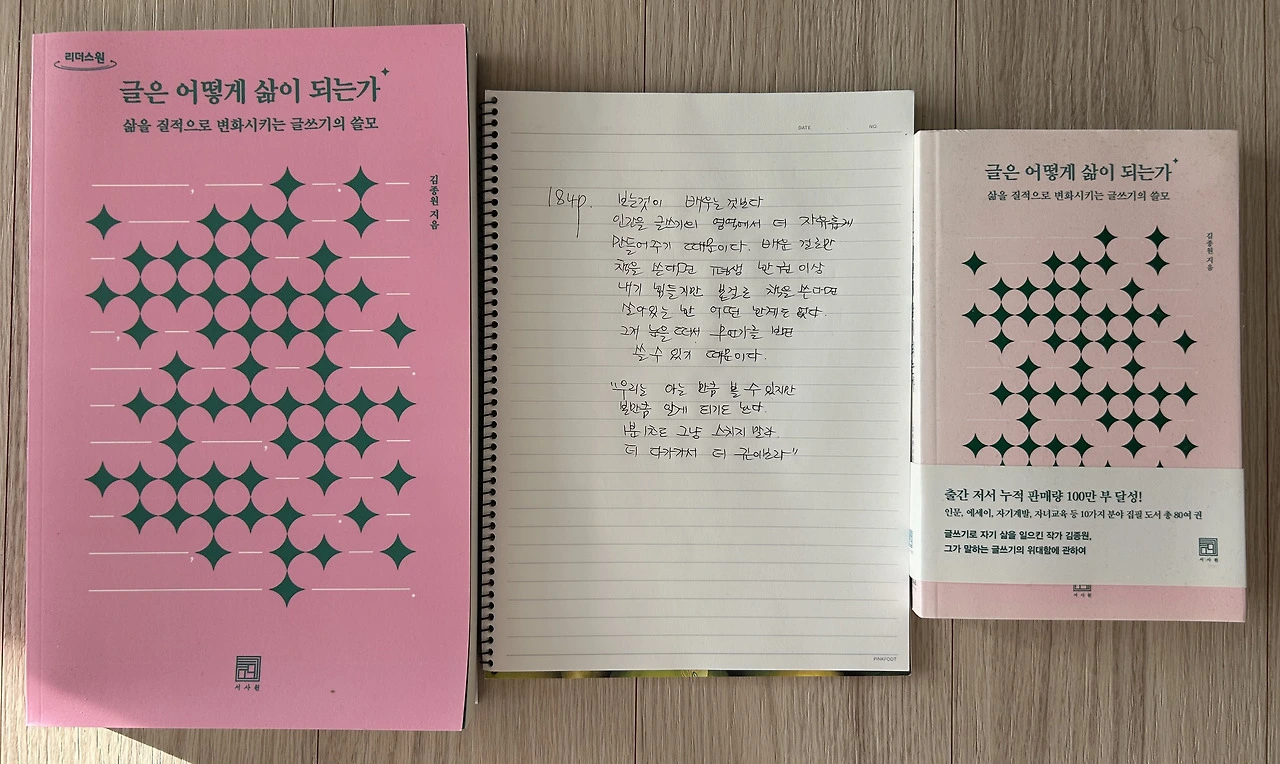 리더스원
글은 어떻게 삶이 되는가
삶을 질적으로 변화시키는 글쓰기의 쓸모
김종원 지음
서사원
DATE
NO
184p. 보는것이 배우는것보다
인간을 글쓰기의 영역에서 더 자유롭게
만들어주기 때문이다. 배운 걸로만
책을 쓴다면 평생 한 권 이상
내기 힘들지만 본걸로 책을 쓴다면
살아있는 한 어떤 한계도 없다.
그저 눈을 떠서 무언가를 보면
쓸 수 있기 때문이다.
"우리는 아는 만큼 볼 수 있지만
본만큼 알게 되기도 한다.
1분 1초도 그냥 스치지 말라.
더 다가가서 더
PINKFOOT
글은 어떻게 삶이 되는가
삶을 질적으로 변화시키는 글쓰기의 쓸모
김종원 지음
출간 저서 누적 판매량 100만 부 달성!
인문, 에세이, 자기계발, 자녀교육 등 10가지 분야 집필 도서 총 80여 권
글쓰기로 자기 삶을 일으킨 작가 김종원,
그가 말하는 글쓰기의 위대함에 관하여
서사원
서사원